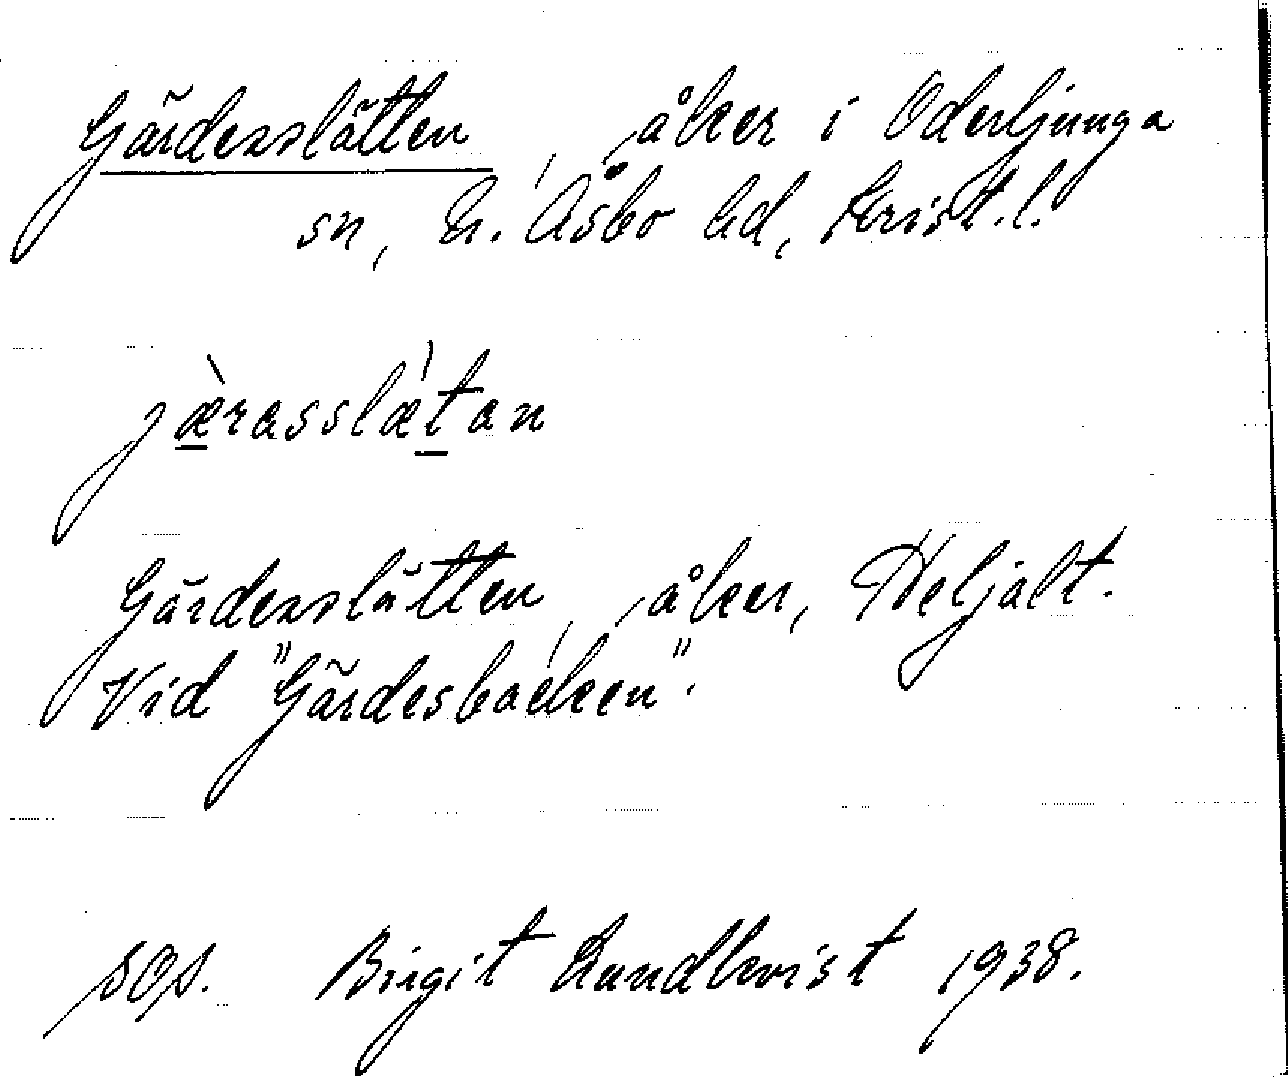 Gärdesslätten, åker i Oderljunga
sn, N. Åsbo hd, Krist. l.
jæ̀rasslǽtan
Gärdesslätten, åker, Heljalt.
Vid "Gärdesbacken".
SOA. Birgit Lundkvist 1938.